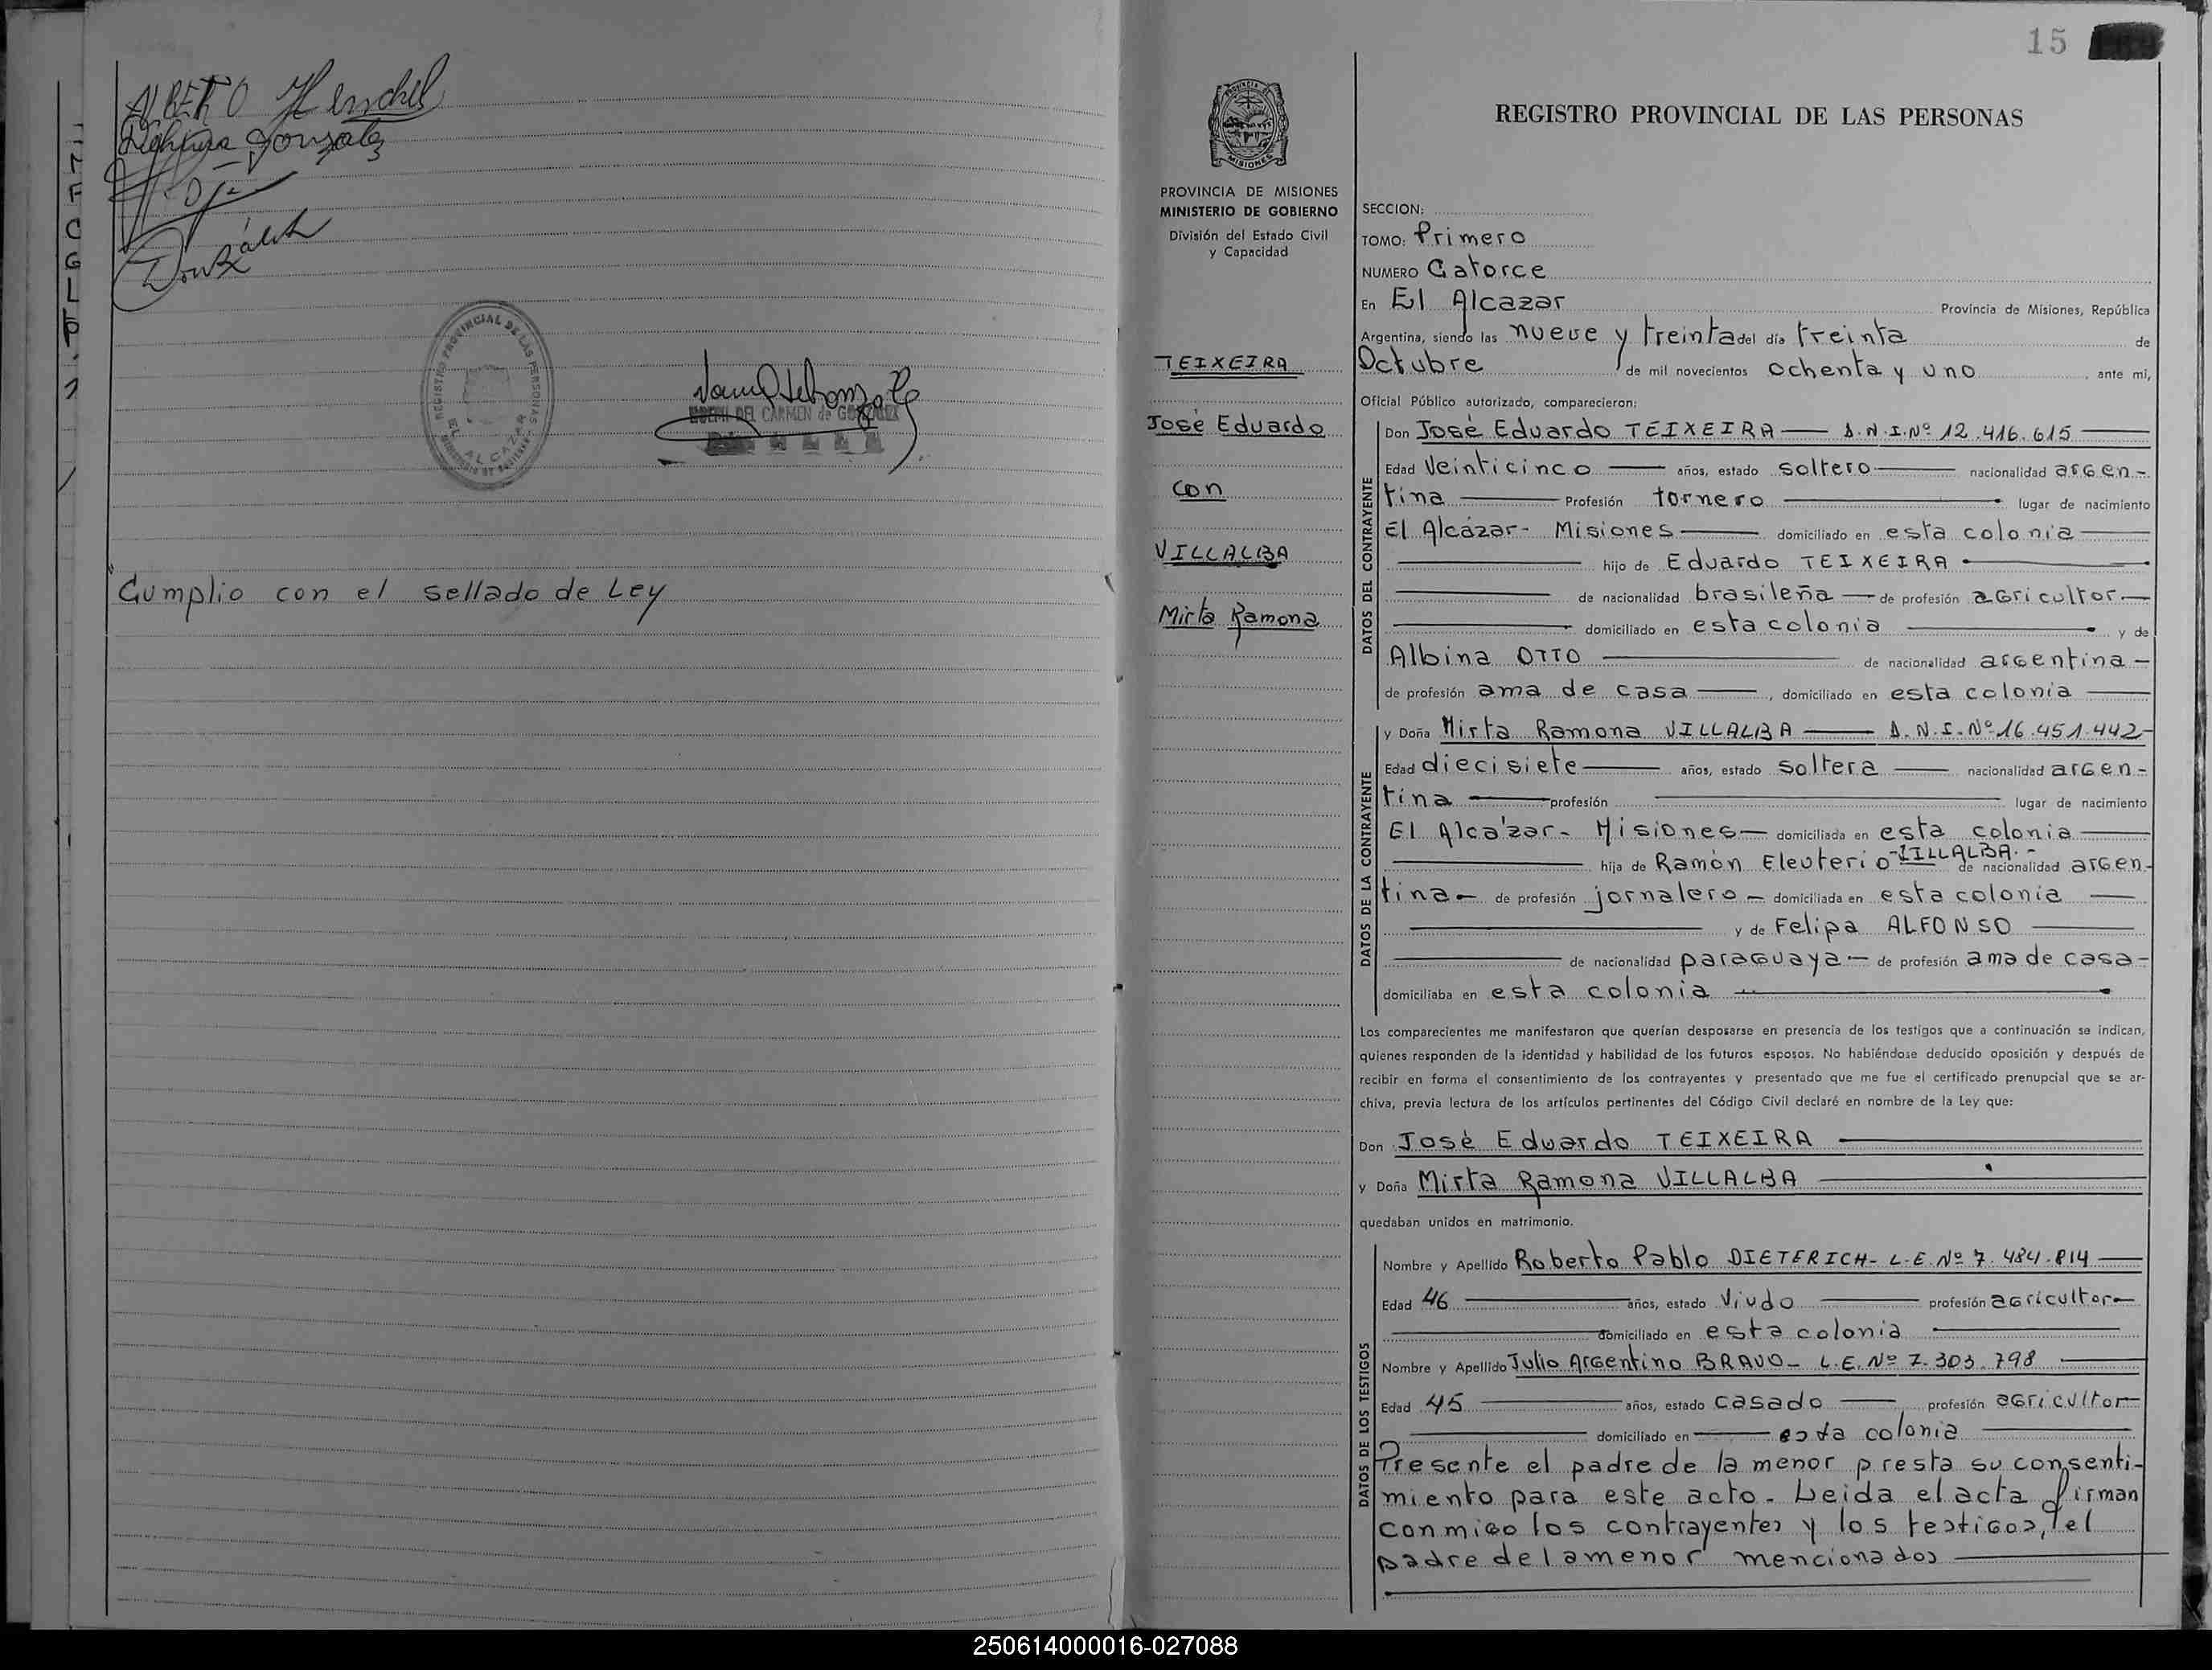 ALBERTO Henschel
Gonzalez
REGISTRO PROVINCIAL DE LAS PERSONAS
EL ALCAZAR
Cumplio con el sellado de Ley
15
PROVINCIA DE MISIONES
MINISTERIO DE GOBIERNO
División del Estado Civil
y Capacidad
TEIXEIRA
José Eduardo
con
VILLALBA
Mirta Ramona
REGISTRO PROVINCIAL DE LAS PERSONAS
SECCION:
TOMO: Primero
NUMERO Catorce
En El Alcazar Provincia de Misiones, República
Argentina, siendo las nueve y treinta del día treinta de
Octubre de mil novecientos ochenta y uno, ante mi,
Oficial Público autorizado, comparecieron:
DATOS DEL CONTRAYENTE
Don José Eduardo TEIXEIRA — D.N.I.Nº 12.416.615 —
Edad Veinticinco — años, estado soltero — nacionalidad argen-
tina — Profesión tornero — lugar de nacimiento
El Alcázar- Misiones — domiciliado en esta colonia —
— hijo de Eduardo TEIXEIRA —
— de nacionalidad brasileña — de profesión agricultor —
— domiciliado en esta colonia — y de
Albina OTTO — de nacionalidad argentina —
de profesión ama de casa —, domiciliado en esta colonia —
DATOS DE LA CONTRAYENTE
y Doña Mirta Ramona VILLALBA — D.N.I.Nº 16.451.442-
Edad diecisiete — años, estado soltera — nacionalidad argen-
tina — profesión — lugar de nacimiento
El Alcázar- Misiones — domiciliada en esta colonia —
— hija de Ramón Eleuterio -VILLALBA.- de nacionalidad argen-
tina — de profesión jornalero — domiciliada en esta colonia —
— y de Felipa ALFONSO —
— de nacionalidad paraguaya — de profesión ama de casa-
domiciliaba en esta colonia —
Los comparecientes me manifestaron que querían desposarse en presencia de los testigos que a continuación se indican,
quienes responden de la identidad y habilidad de los futuros esposos. No habiéndose deducido oposición y después de
recibir en forma el consentimiento de los contrayentes y presentado que me fue el certificado prenupcial que se ar-
chiva, previa lectura de los artículos pertinentes del Código Civil declaré en nombre de la Ley que:
Don José Eduardo TEIXEIRA —
y Doña Mirta Ramona VILLALBA —
quedaban unidos en matrimonio.
DATOS DE LOS TESTIGOS
Nombre y Apellido Roberto Pablo DIETERICH- L.E. Nº 7.484.814 —
Edad 46 — años, estado Viudo — profesión agricultor —
— domiciliado en esta colonia —
Nombre y Apellido Julio Argentino BRAVO- L.E. Nº 7.303.798 —
Edad 45 — años, estado casado — profesión agricultor —
— domiciliado en — esta colonia —
Presente el padre de la menor presta su consenti-
miento para este acto. Leida el acta firman
conmigo los contrayentes y los testigos, el
padre de la menor mencionados —
250614000016-027088